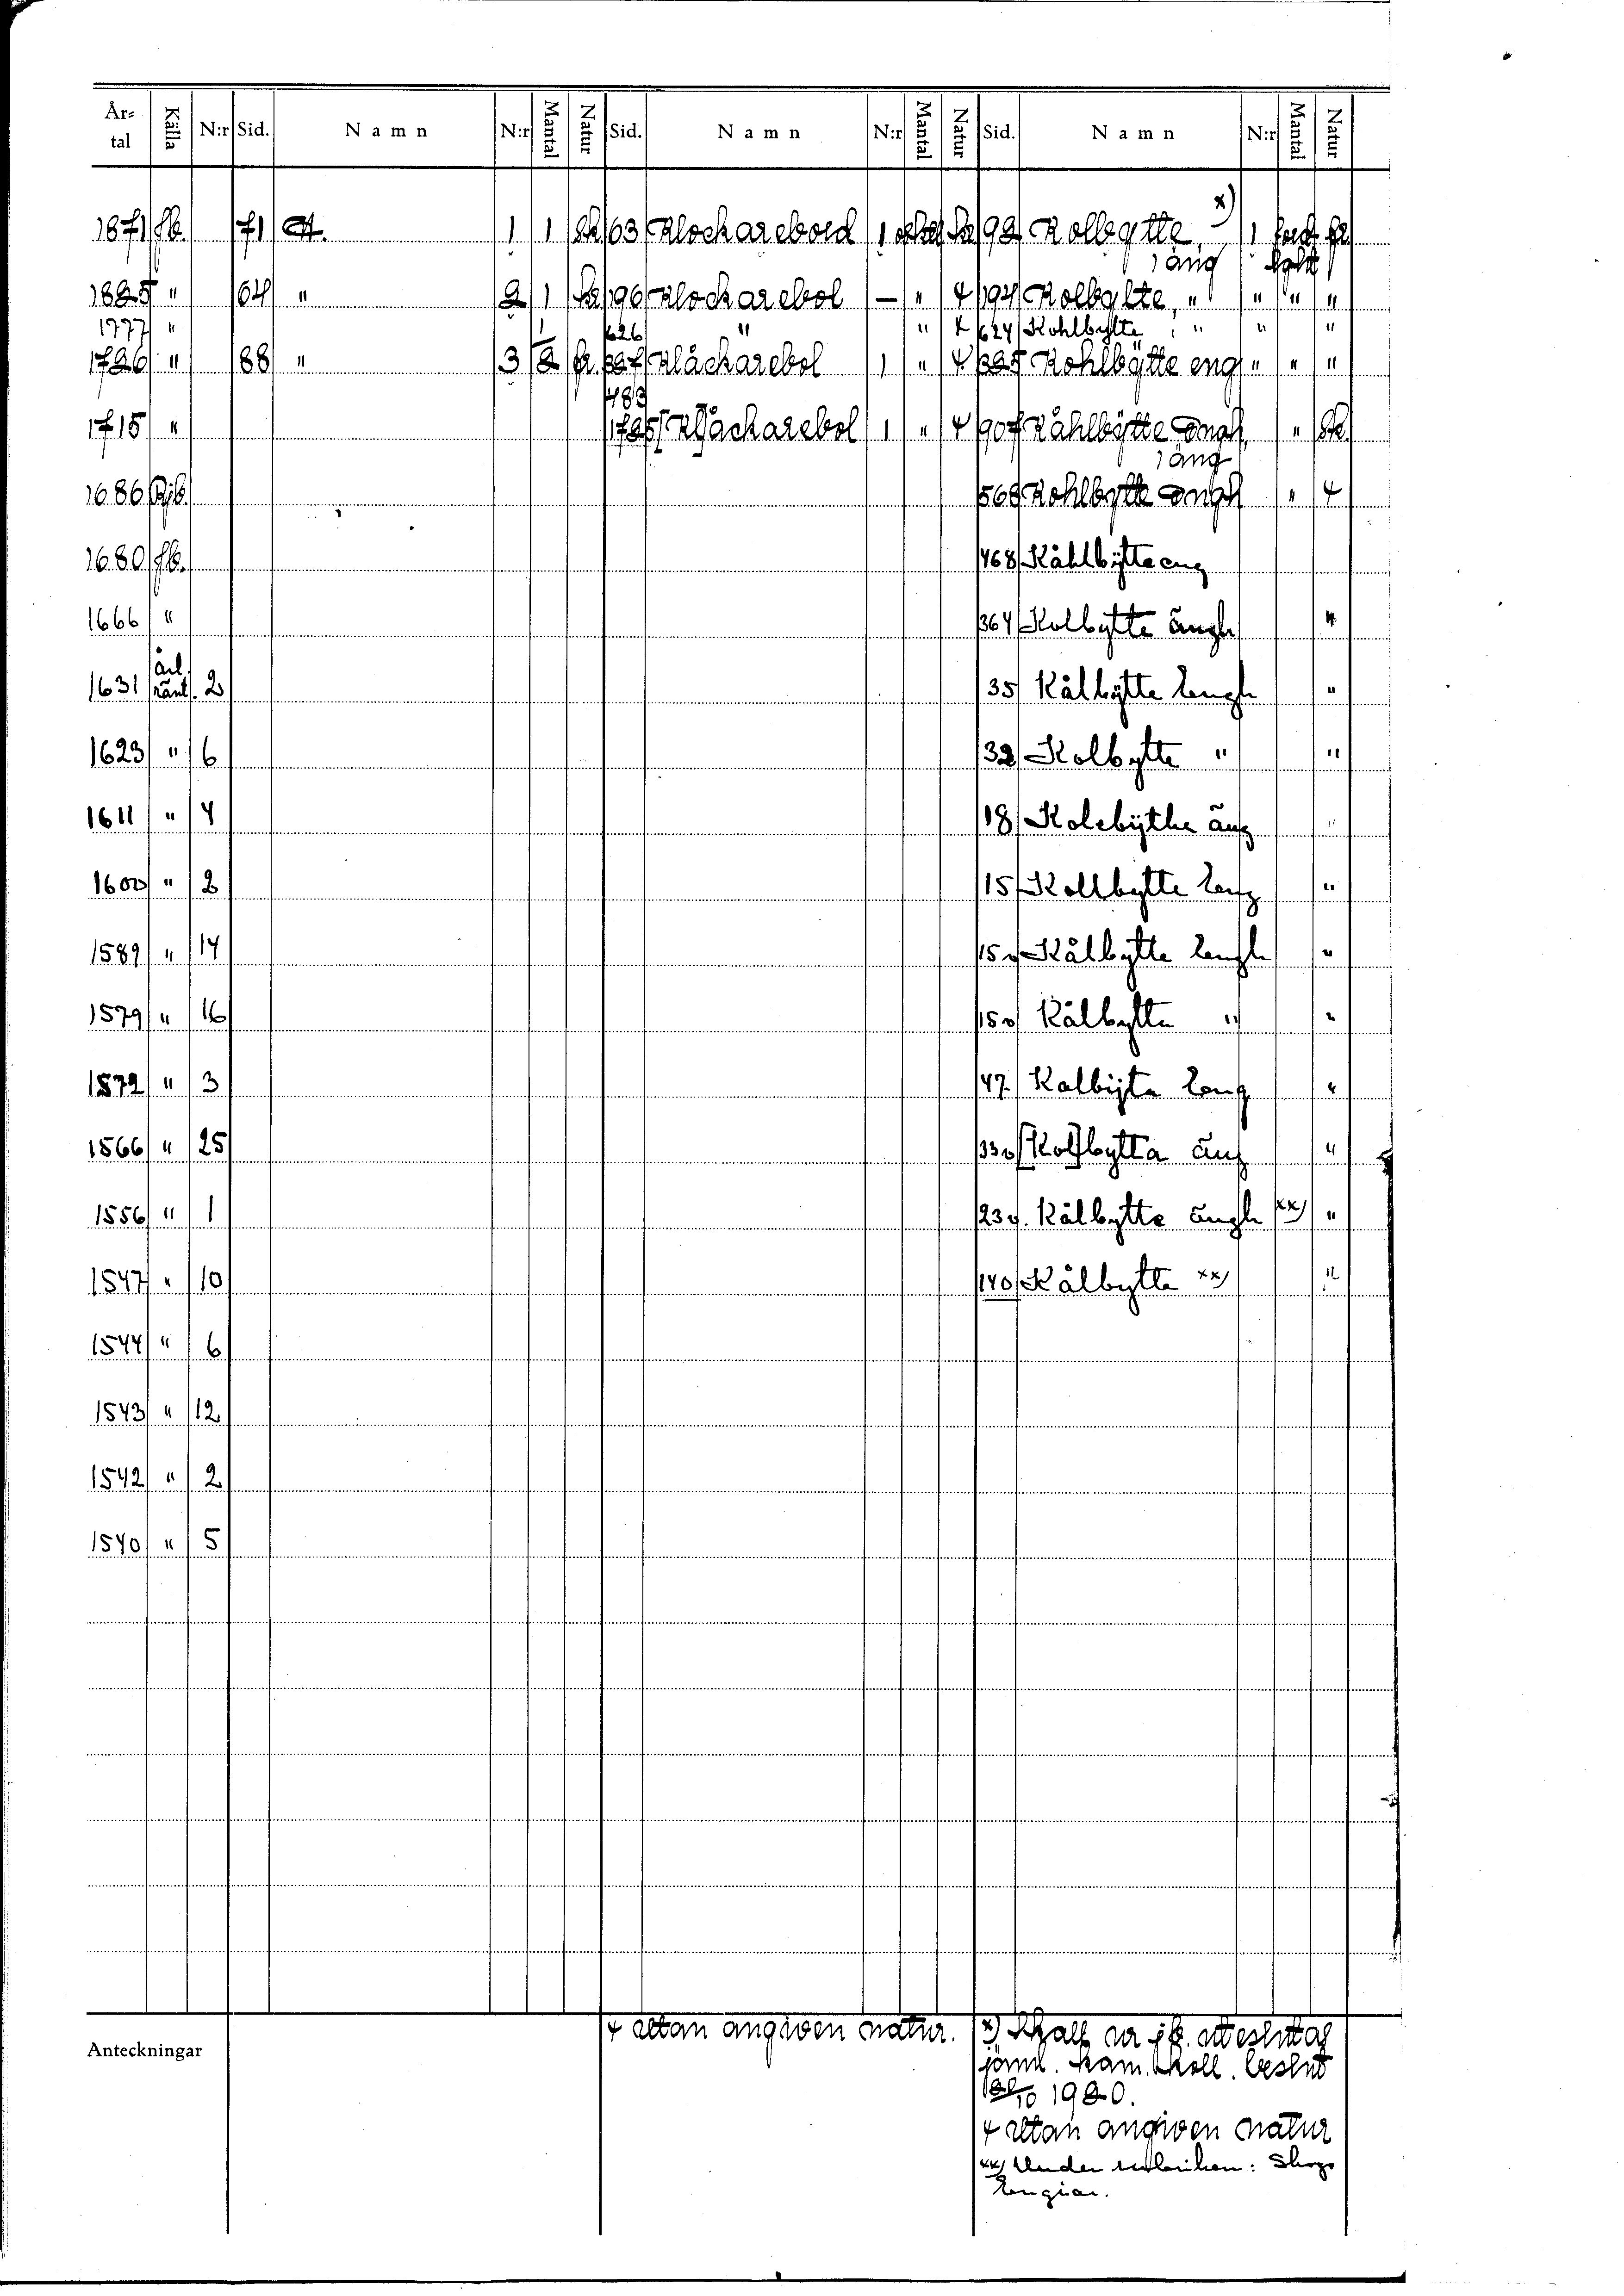 År-tal Källa N:r Sid. Namn N:r Mantal Natur Sid. Namn N:r Mantal Natur Sid. Namn N:r Mantal Natur
1871 jb. 71 A. 1 1 sk 63 Klockarebord 1 92 Kolbytte, x) 1 fr
1 äng
1825 " 64 " 2 1 196 Klockarebol — " 4 194 Kolbytte, " " " "
1777 " 626 " " 4 624 Kohlbytte, " " "
1726 " 88 " 3 1/2 fr. 327 Klåckarebol 1 " 4 325 Kohlbÿtte eng " " "
483
1715 " 1725 [Kl]åckarebol 1 " 4 907 Kåhlbÿtte Engh, " sk.
1 äng
1686 Rjb. 568 Kohlbytte Engh " 4
1680 jb. 468 Kåhlbÿtte eng
1666 " 364 Kolbytte ängh "
1631 årl. ränt. 2 35 Kålbÿtte Lengh "
1623 " 6 32 Kolbytte " "
1611 " 4 18 Kolebÿthe äng "
1600 " 2 15 Kollbytte Leng "
1589 " 14 15v Kålbytte Lengh "
1579 " 16 15v Kålbytte " "
1572 " 3 47 Kalbijta Leng "
1566 " 25 33v [Kol]bytta äng "
1556 " 1 23v. Kålbytte ängh xx) "
1547 " 10 140 Kålbytte xx) "
1544 " 6
1543 " 12
1542 " 2
1540 " 5
Anteckningar
4 utan angiven natur.
x) Skall ur jb. uteslutas
jäml. kam. koll. beslut
10 1920.
4 utan angiven natur
xx) Under rubriken: Skogs
Lengiar.